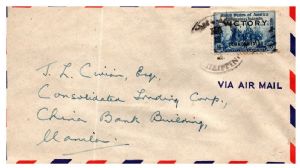 United States of America
VICTORY
VIA AIR MAIL
J. L. Civian, Esq.,
Consolidated Trading Corp.,
China Bank Building,
Manila.